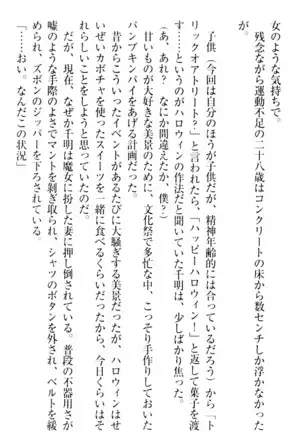 女のような気持ちで。
　残念ながら運動不足の二十八歳はコンクリートの床から数センチしか浮かなかった
が。
　子供（今回は自分のほうが子供だが、精神年齢的には合っているだろう）から「ト
リックオアトリートゥ」と言われたら、「ハッピーハロウィン！」と返して菓子を渡
す……というのがハロウィンの作法だと聞いていた千明は、少しばかり焦った。
（あ、あれ？　なにか間違えたか、僕？）
　甘いものが大好きな美景のために、文化祭で多忙な中、こっそり手作りしておいた
パンプキンパイをあげる計画だった。
　昔からこういったイベントがあるたびに大騒ぎする美景だったが、ハロウィンはせ
いぜいカボチャを使ったスイーツを一緒に食べるくらいだったから、今日くらいはそ
れらしいことをしようと思っていたのだ。
　だが、現在、なぜか千明は魔女に扮した妻に押し倒されている。普段の不器用さが
嘘のような手際のよさでマントを剥ぎ取られ、シャツのボタンを外され、ベルトを緩
められ、ズボンのジッパーを下ろされている。
「……おい。なんだこの状況」